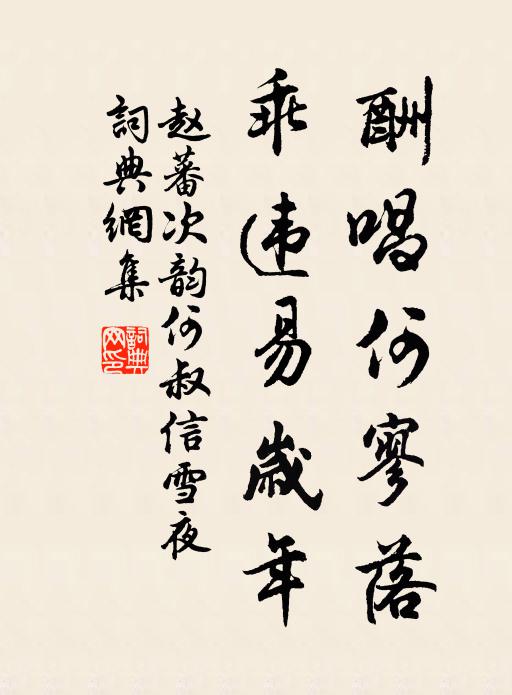 酬唱何寥落
乖违易歲年
赵蕃次韵何叔信雪夜
詞典網集
詞典網印